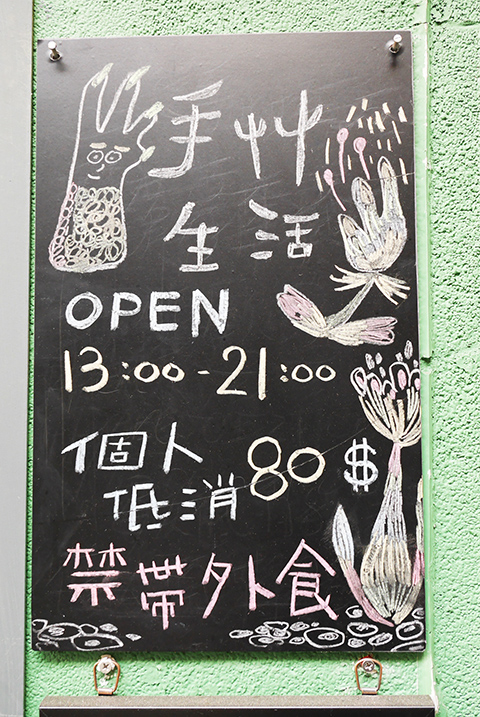 手艸
生活
OPEN
13:00-21:00
個人
低消 80$
禁帶外食